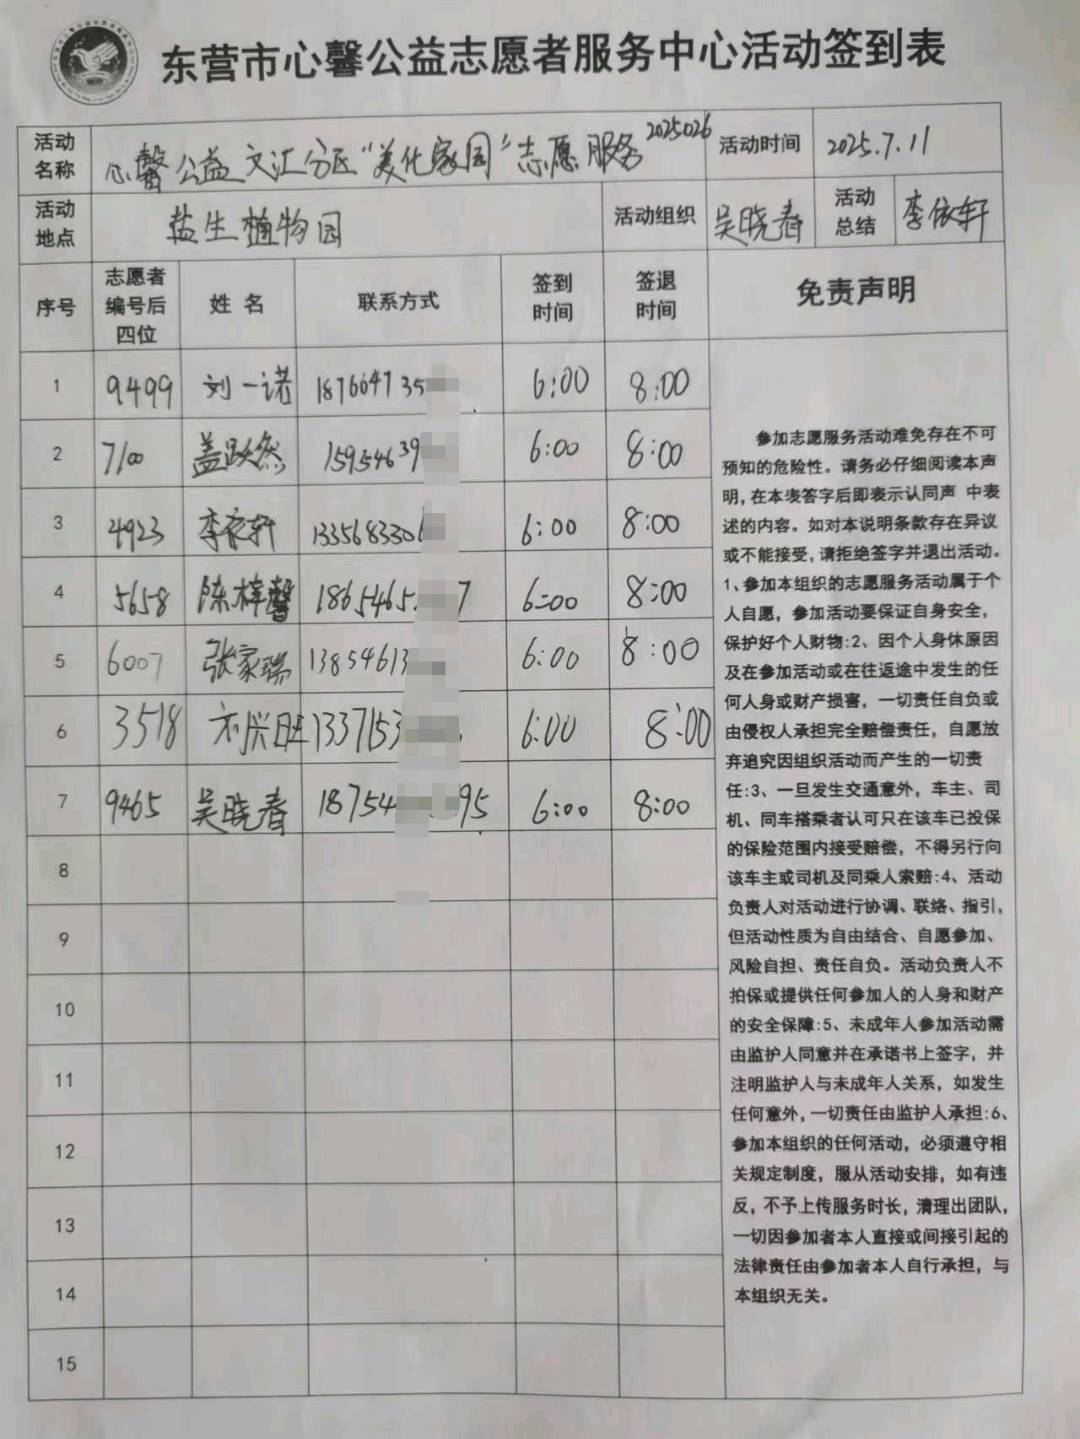 东营市心馨公益志愿者服务中心活动签到表
活动名称 心馨公益文汇分区“美化家园”志愿服务2025026 活动时间 2025.7.11
活动地点 盐生植物园 活动组织 吴晓春 活动总结 李依轩
序号 志愿者编号后四位 姓名 联系方式 签到时间 签退时间 免责声明
1 9499 刘一诺 187664735 6:00 8:00
2 7100 盖跃然 15954639 6:00 8:00
3 4923 李依轩 1335683306 6:00 8:00
4 5658 陈梓馨 1865465 7 6:00 8:00
5 6007 张家瑞 13854613 6:00 8:00
6 3518 刘兴旺 1337153 6:00 8:00
7 9465 吴晓春 18754 95 6:00 8:00
8
9
10
11
12
13
14
15
参加志愿服务活动难免存在不可
预知的危险性。请务必仔细阅读本声
明,在本表签字后即表示认同声 中表
述的内容。如对本说明条款存在异议
或不能接受,请拒绝签字并退出活动。
1、参加本组织的志愿服务活动属于个
人自愿，参加活动要保证自身安全，
保护好个人财物:2、因个人身休原因
及在参加活动或在往返途中发生的任
何人身或财产损害，一切责任自负或
由侵权人承担完全赔偿责任，自愿放
弃追究因组织活动而产生的一切责
任:3、一旦发生交通意外，车主、司
机、同车搭乘者认可只在该车已投保
的保险范围内接受赔偿，不得另行向
该车主或司机及同乘人索赔:4、活动
负责人对活动进行协调、联络、指引，
但活动性质为自由结合、自愿参加、
风险自担、责任自负。活动负责人不
拍保或提供任何参加人的人身和财产
的安全保障:5、未成年人参加活动需
由监护人同意并在承诺书上签字，并
注明监护人与未成年人关系，如发生
任何意外,一切责任由监护人承担:6、
参加本组织的任何活动，必须遵守相
关规定制度，服从活动安排，如有违
反，不予上传服务时长，清理出团队，
一切因参加者本人直接或间接引起的
法律责任由参加者本人自行承担，与
本组织无关。